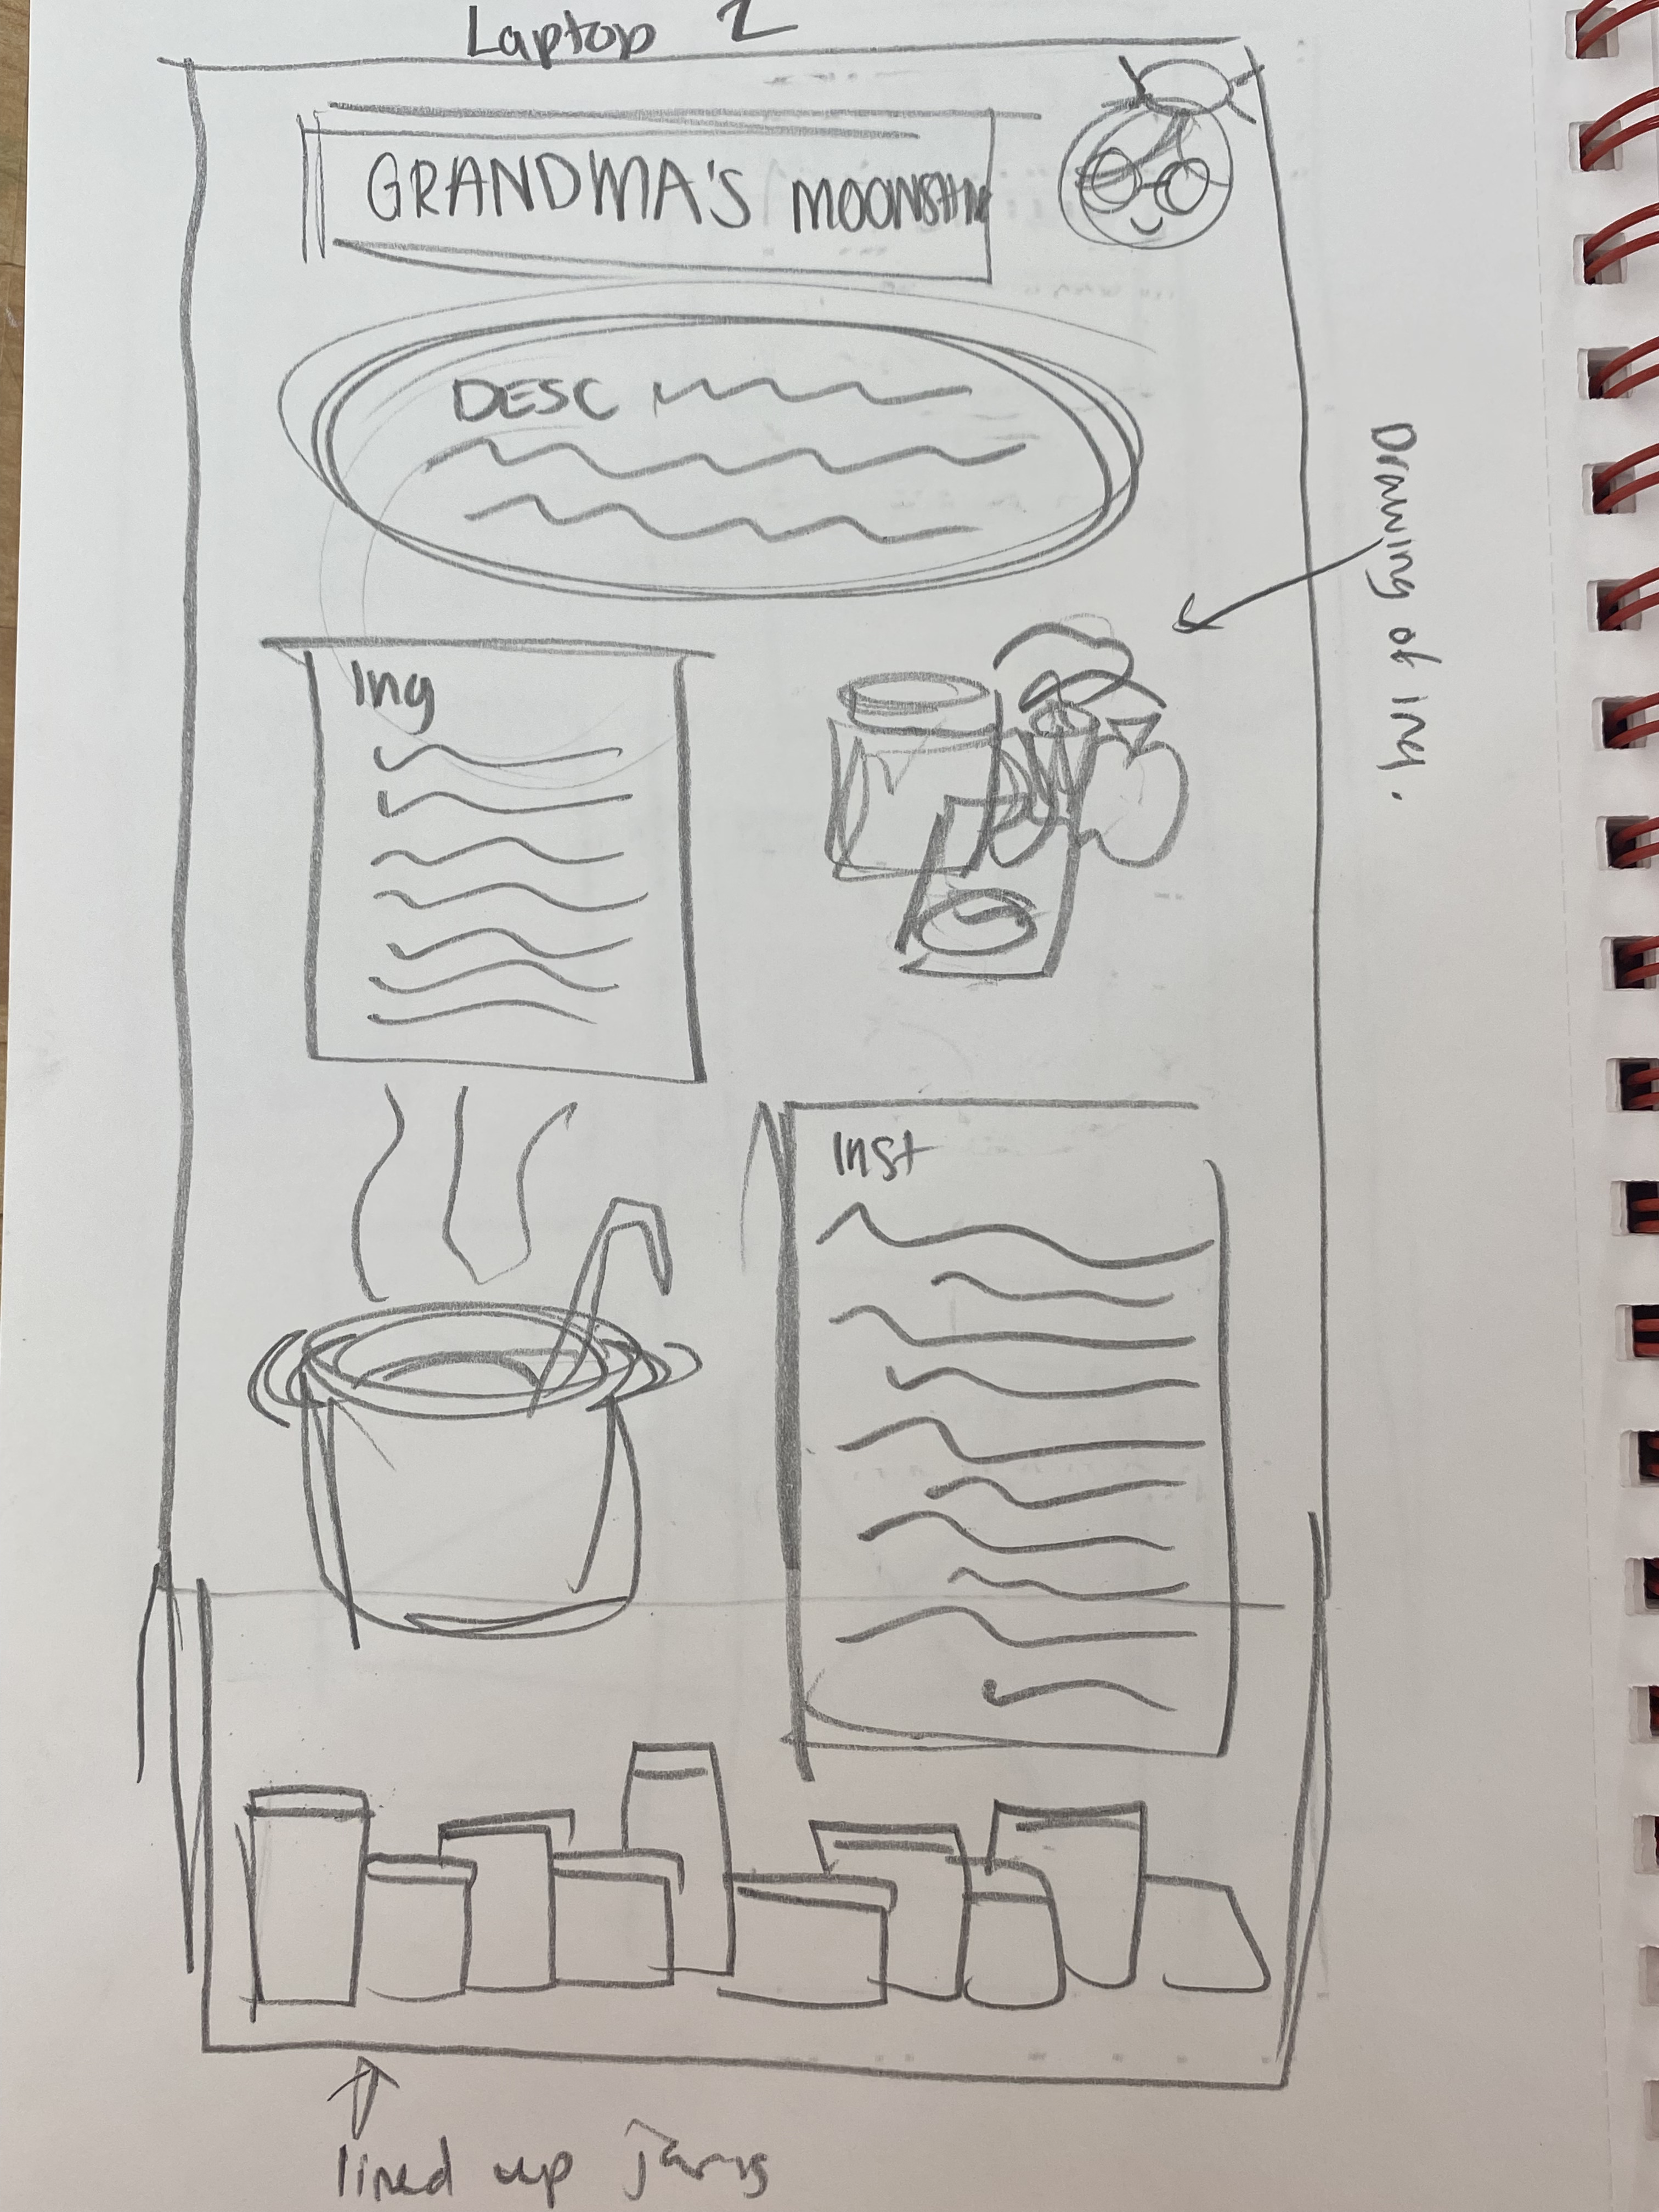 Laptop 2
GRANDMA'S MOONSHIN
DESC
Drawing of ing.
Ing
Inst
lined up jars